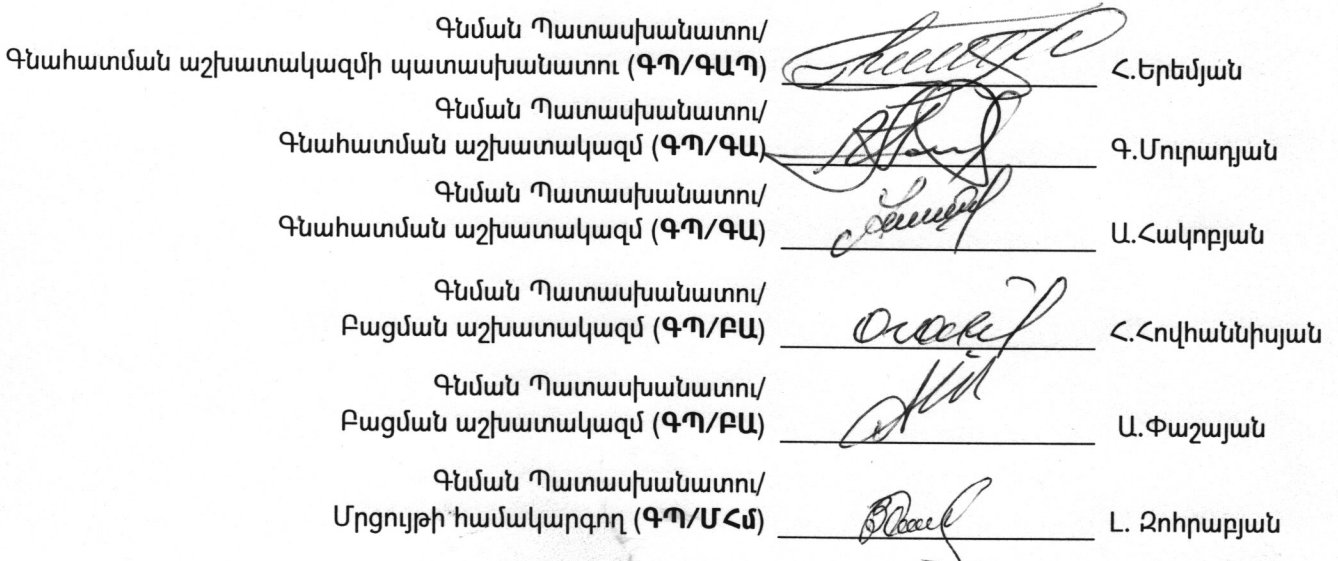 Գնման Պատասխանատու/
Գնահատման աշխատակազմի պատասխանատու (ԳՊ/ԳԱՊ) Հ.Երեմյան
Գնման Պատասխանատու/
Գնահատման աշխատակազմ (ԳՊ/ԳԱ) Գ.Մուրադյան
Գնման Պատասխանատու/
Գնահատման աշխատակազմ (ԳՊ/ԳԱ) Ա.Հակոբյան
Գնման Պատասխանատու/
Բացման աշխատակազմ (ԳՊ/ԲԱ) Հ.Հովհաննիսյան
Գնման Պատասխանատու/
Բացման աշխատակազմ (ԳՊ/ԲԱ) Ա.Փաշայան
Գնման Պատասխանատու/
Մրցույթի համակարգող (ԳՊ/ՄՀմ) Լ. Զոհրաբյան